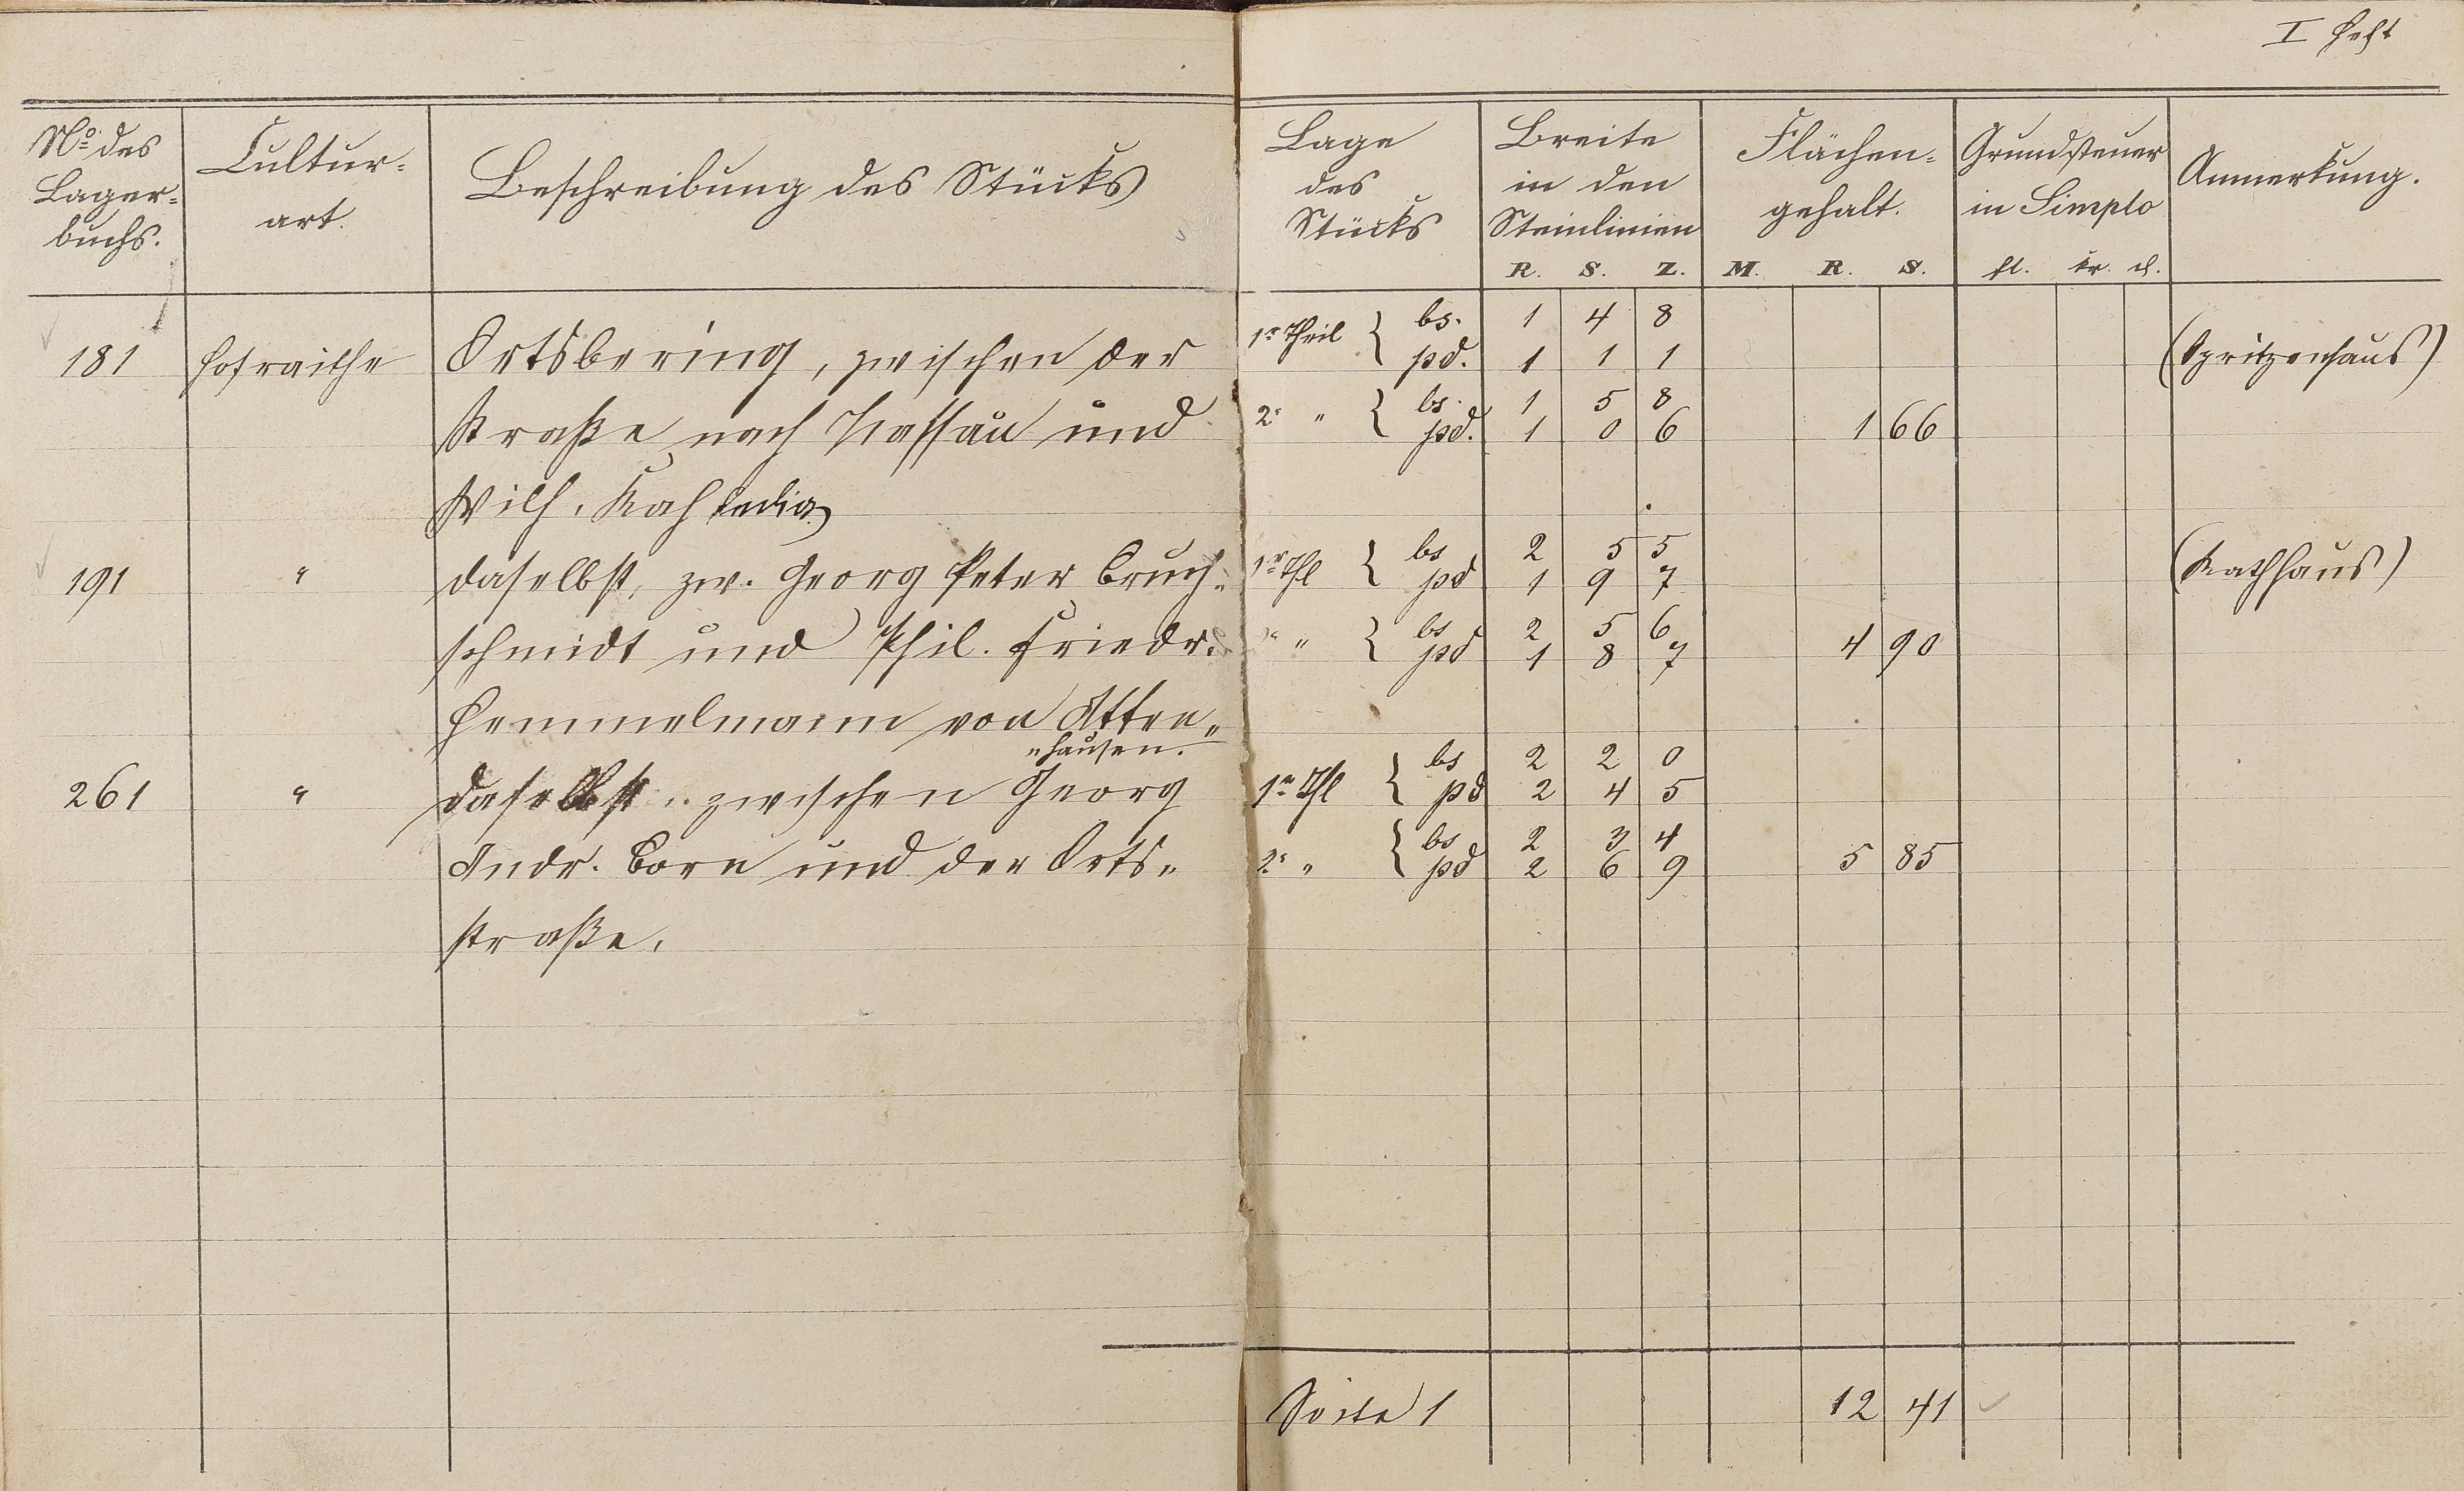 I Heft
No. des Lager= buchs.
Cultur= art.
Beschreibung des Stücks
Lage des Stücks
Breite in den Steinlinien
R. S. Z.
Flächen= gehalt.
M. R. S.
Grundsteuer in Simplo
fl. kr. d.
Anmerkung.
181 Hofraithe Ortsbering, zwischen der 1r Theil { bs. 1 4 8 (Spritzenhaus)
pd. 1 1 1
Straße nach Nassau und 2r " { bs. 1 5 8
pd. 1 0 6 1 66
Wilh. Kah ledig
191 " daselbst, zw. Georg Peter Bruch= 1r Thl { bs 2 5 5 (Rathhaus)
pd 1 9 7
schmidt und Phil. Friedr. 2r " { bs 2 5 6
pd 1 8 7 4 90
Hemmelmann von Atten„
„hausen.
261 " daselbst, zwischen Georg 1r Thl { bs 2 2 0
pd 2 4 5
Andr. Born und der Orts„ 2r " { bs 2 3 4
pd 2 6 9 5 85
straße.
Seite 1 12 41